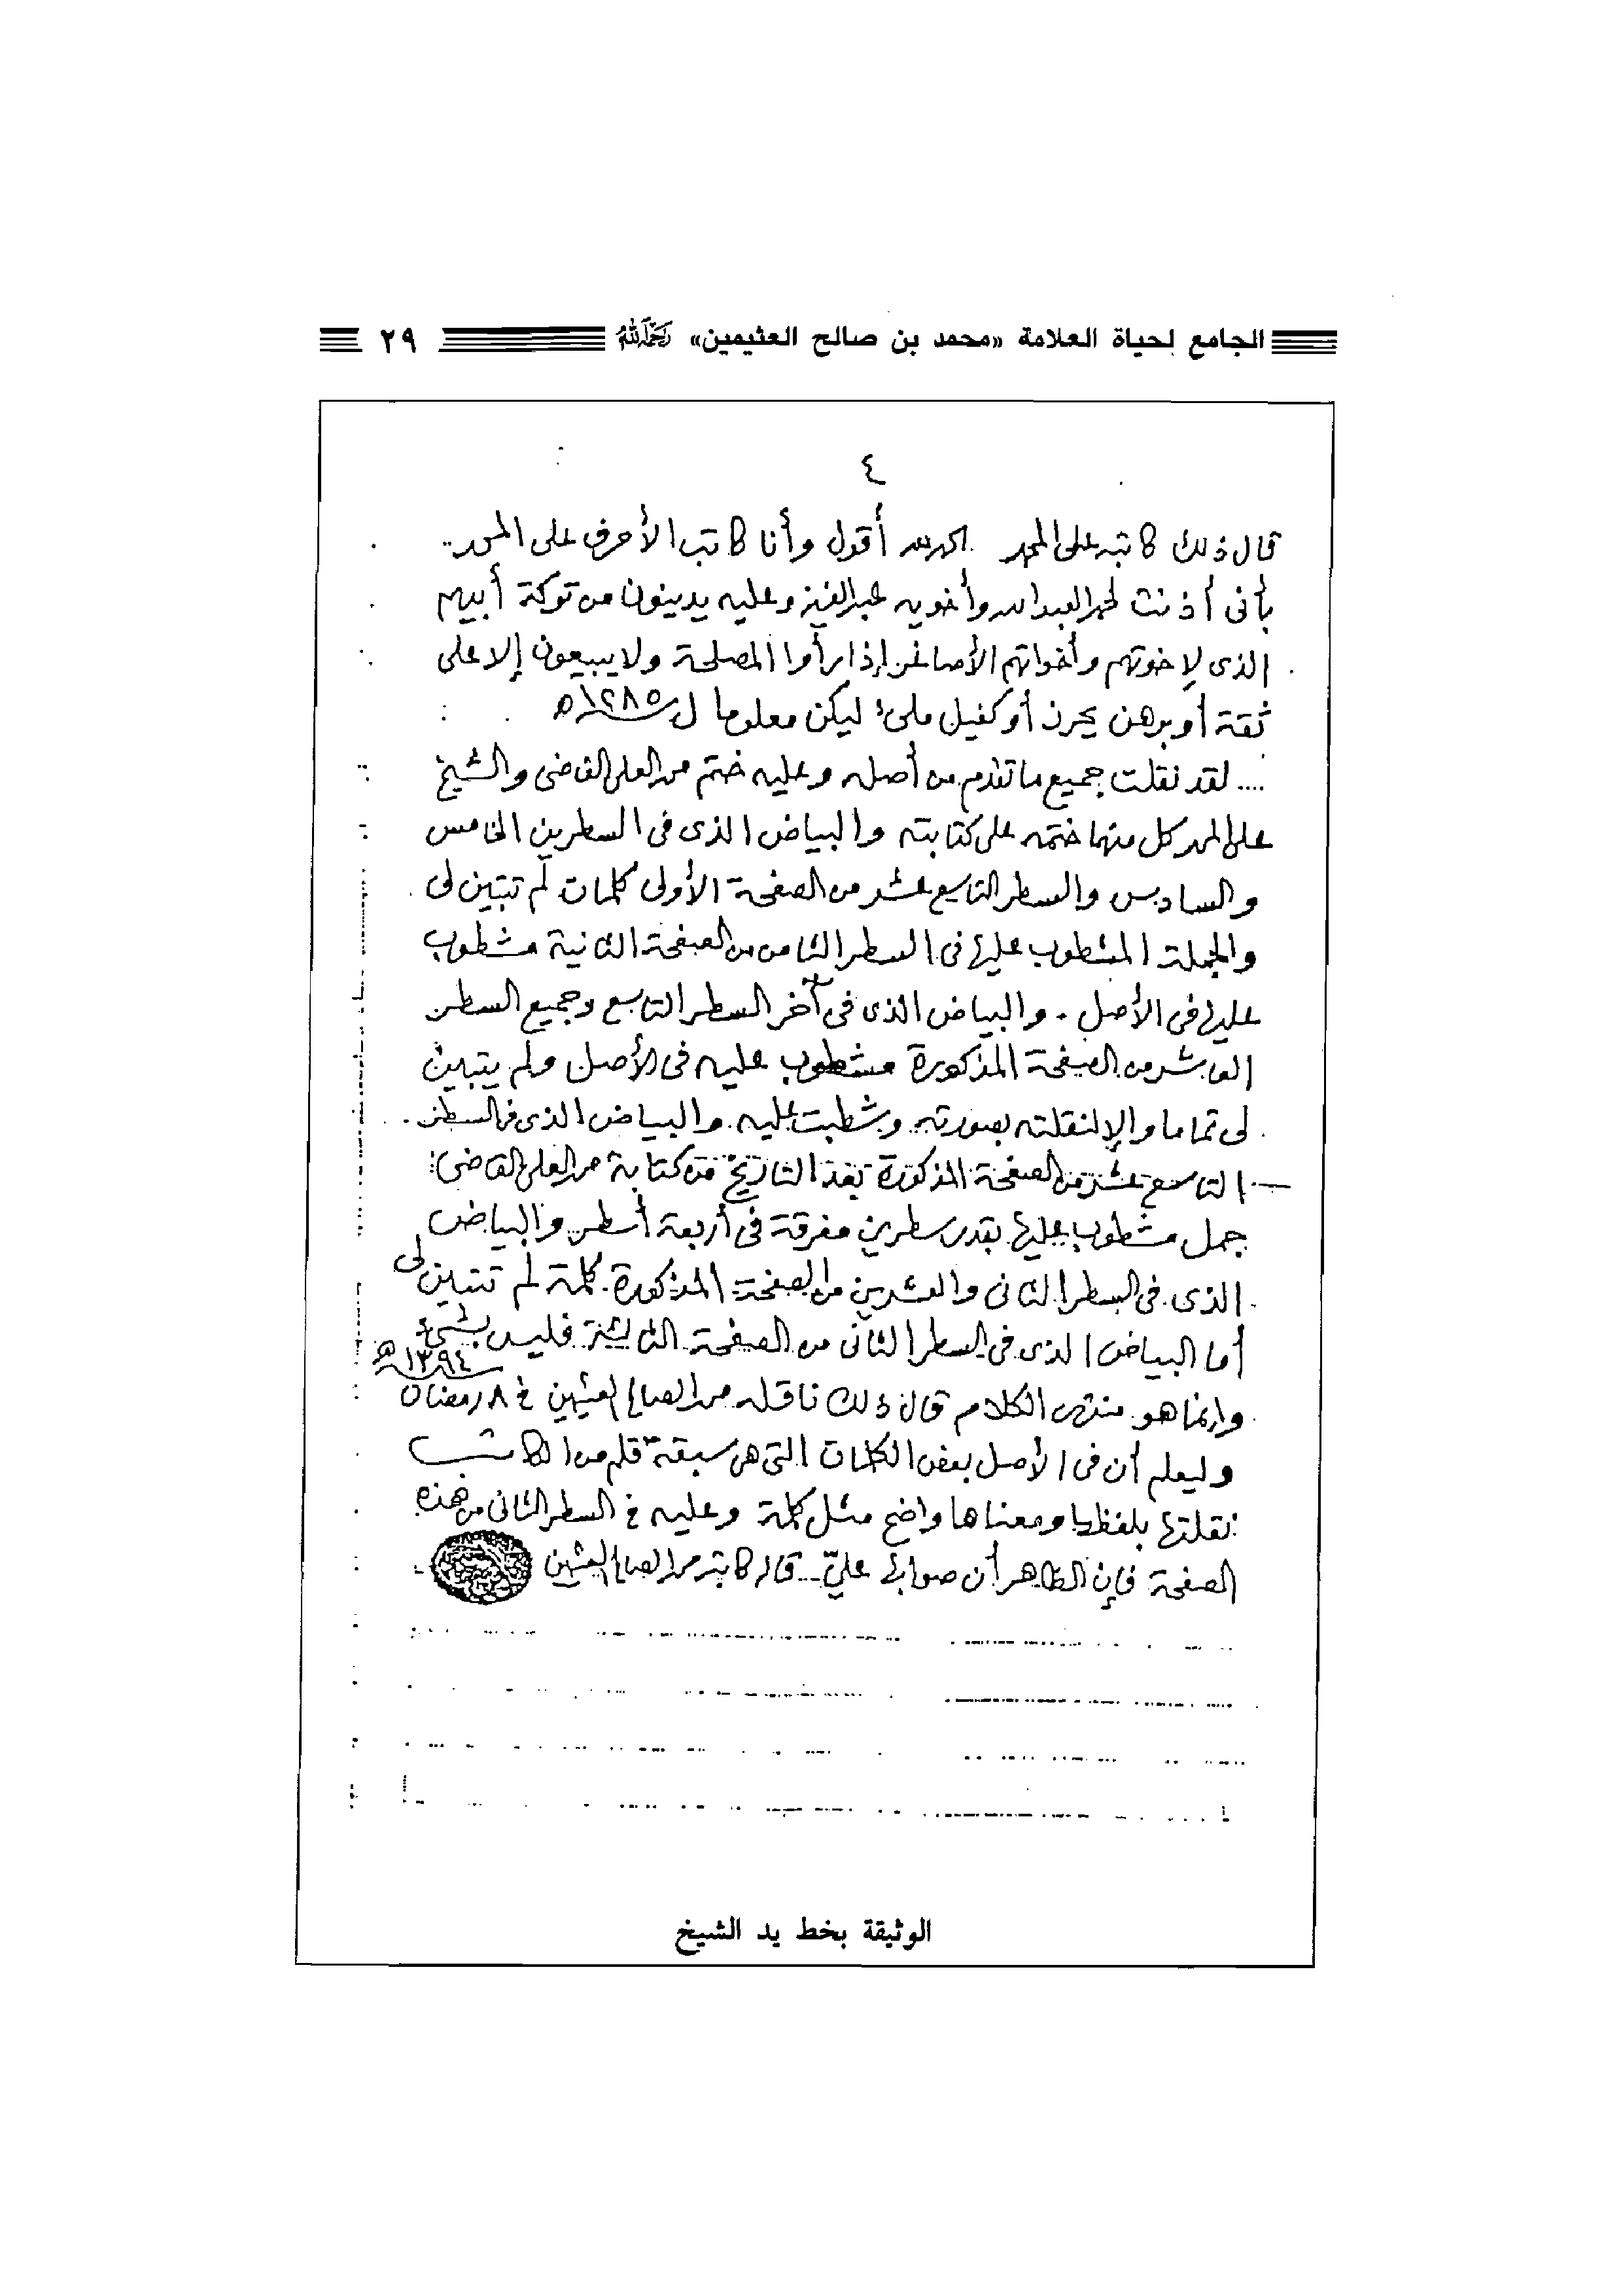 الجامع لحياة العلامة «محمد بن صالح العثيمين» رحمه الله ٢٩
٤
قال ذلك كاتبه على المحمد الحمد لله أقول وأنا كاتب الأحرف على المحمد
بأني أذنت لمحمد العبدالله وأخويه عبدالعزيز وعليه يدينون من تركة أبيهم
الذي لإخوتهم وأخواتهم الأصاغر إذا رأوا المصلحة ولا يبيعون إلا على
ثقة أو برهن يحرز أو كفيل ملئ ليكن معلوما ١٢٨٥هـ
.... لقد نقلت جميع ما تقدم من أصله وعليه ختم محمد العلي القاضي والشيخ
علي المحمد كل منهما ختمه على كتابته والبياض الذي في السطرين الخامس
والسادس والسطر التاسع عشر من الصفحة الأولى كلمات لم تتبين لي
والجملة المشطوب عليها في السطر الثامن من الصفحة الثانية مشطوب
عليها في الأصل . والبياض الذي في آخر السطر التاسع وجميع السطر
العاشر من الصفحة المذكورة مشطوب عليه في الأصل ولم يتبين
لي تماما وإلا لنقلته بصورته وشطبت عليه والبياض الذي في السطر
التاسع عشر من الصفحة المذكورة بعد التاريخ من كتابة محمد العلي القاضي :
جمل مشطوب عليها بقدر سطرين مفرقة في أربعة أسطر والبياض
الذي في السطر الثاني والعشرين من الصفحة المذكورة كلمة لم تتبين لي
أما البياض الذي في السطر الثاني من الصفحة الثالثة فليس بشيء
وإنما هو منتهى الكلام قال ذلك ناقله محمد الصالح العثيمين في ٨ رمضان ١٣٩٤هـ
وليعلم أن في الأصل بعض الكلمات التي هي سبقة قلم من الكاتب
نقلتها بلفظها ومعناها واضح مثل كلمة وعليه في السطر الثاني من هذه
الصفحة فإن الظاهر أن صوابها عليّ .. قال كاتبه محمد الصالح العثيمين
الوثيقة بخط يد الشيخ